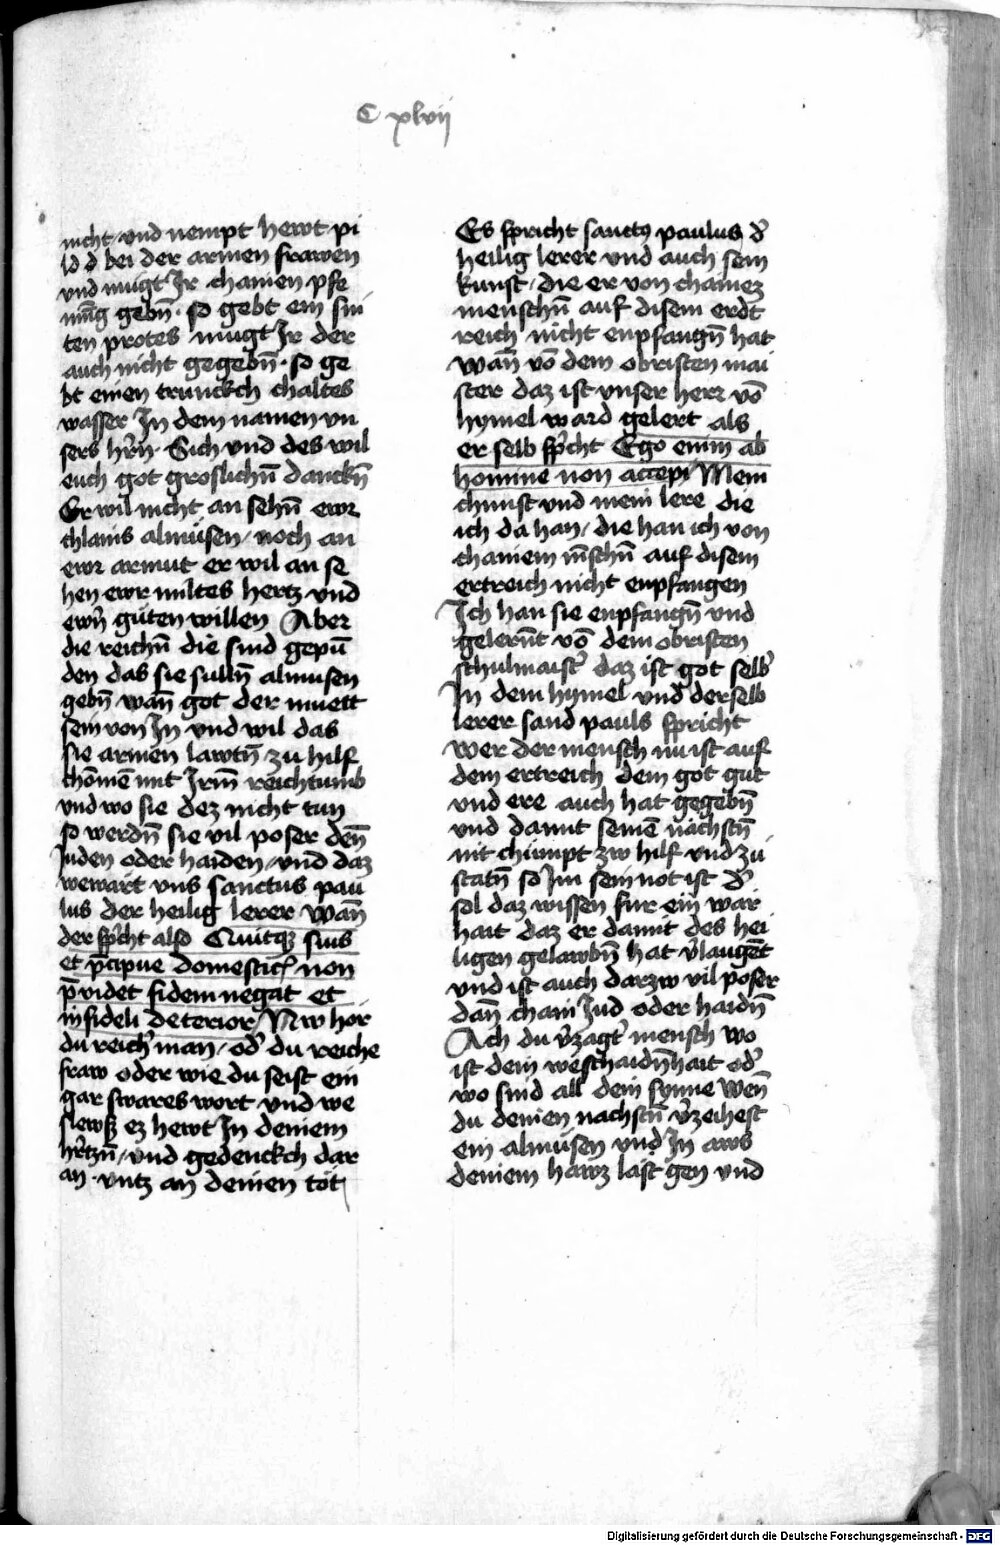 C xlvii
nicht / vnd nempt hewt pi
ld d bei der armen frawen
vnd mugt Ir chainen pfe
nn̄g gebn̄ · so gebt ein sni
ten protes mugt Ir der
auch nicht gegebn̄ · so ge
bt einen trunckch chaltes
wasser In dem namen vn
sers hr̄n · Sich vnd des wil
euch got groslichn̄ danckn̄
Er wil nicht an sehn̄ ewr
chlains almůsen / noch an
ewr armut er wil an se
hen ewr miltes hertz vnd
ewrn̄ gůten willen Aber
die reichn̄ die sind gepū
den das sie sulln̄ almusen
gebn̄ wan̄ got der muett
sein von In vnd wil das
sie armen lawtn̄ zu hilf
chōmē mit Irm̄ reichtumb
vnd wo sie dez nicht tun
so werdn̄ sie vil poser den̄
Iuden oder haiden / vnd daz
wewart vns sanctus pau
lus der heilig lerer wan̄
der sp̄cht also Quitqz suis
et p̄cipue domesticꝝ non
p̄videt fidem negat et
infideli deterior / Nw hör
du reichꝰ man / odꝰ du reiche
fraw oder wie du seist ein
gar swares wort vnd we
slewsz ez hewt In deinem
hꝰtzn̄ / vnd gedenckch dar
an · vntz an deinen tot
Es spricht sanctꝰ paulus dꝰ
heilig lerer vnd auch sein
kunst / die er von chainez
menschn̄ auf disem erdt
reich nicht enpfangn̄ hat
wan̄ vō dem obristen mai
ster daz ist vnser herr vō
hymel ward gelert als
er selb sp̄cht Ego enim ab
homine non accepi Mein
chunst vnd mein lere die
ich da han / die han ich von
chainem mn̄schn̄ auf disem
ertreich nicht enpfangen
Ich han sie enpfangn̄ vnd
gelernt̄ vō dem obristen
schulmaistꝰ daz ist got selbꝰ
In dem hymel vnd derselb
lerer sand pauls spricht
wer der mensch nu ist auf
dem ertreich dem got gut
vnd ere auch hat gegebn̄
vnd damit seinē nächstn̄
nit chümpt zw hilf vnd zu
statn̄ so Im sein not ist dꝰ
sol daz wissen fur ein war
hait daz er damit des hei
ligen gelawbn̄ hat vꝰlaugēt
vnd ist auch darzw vil poser
dan̄ chain Iud oder haidn̄
Ach du vꝰzagtꝰ mensch wo
ist dein weschaidn̄hait odꝰ
wo sind all dein synne wen̄
du deinen nachstn̄ vꝰzeihest
ein almůsen vnd In aws
deinem hawz läst gen vnd
Digitalisierung gefördert durch die Deutsche Forschungsgemeinschaft - DFG